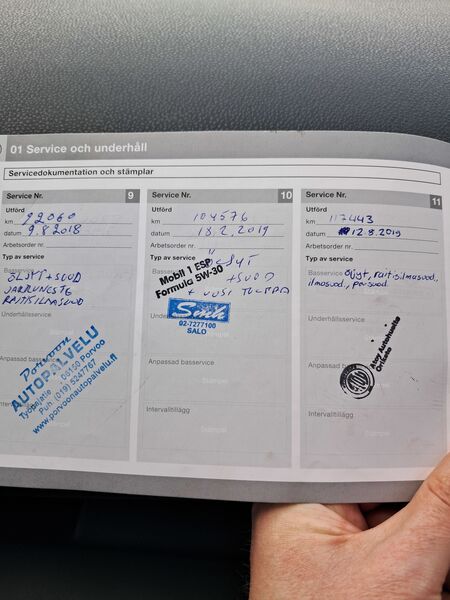 01 Service och underhåll
Servicedokumentation och stämplar
Service Nr. 9
Utförd
km 92060
datum 9.8 2018
Arbetsorder nr.
Typ av service
Basservice
ÖLJYT + SUOD
JARRUNESTE
RAITISILMASUOD
Underhållsservice
Porvoon
AUTOPALVELU
Työpajatie 06150 Porvoo
Puh. (019) 5247767
www.porvoonautopalvelu.fi
Anpassad basservice
Stämpel
Intervalltillägg
Stämpel
Service Nr. 10
Utförd
km 104576
datum 18.2.2019
Arbetsorder nr.
Typ av service
ÖLJYT
Mobil 1 ESP
Formula 5W-30
+ SUOD
+ UUSI TULPPA
Smh
02-7277100
SALO
Anpassad basservice
Stämpel
Intervalltillägg
Stämpel
Service Nr. 11
Utförd
km 117443
datum 12.8.2019
Arbetsorder nr.
Typ av service
Basservice
öljyt, raitisilmasuod.,
ilmasuod., pa.suod.
Underhållsservice
Atoy Autohuolto
Orikato
Anpassad basservice
Intervalltillägg
Stämpel